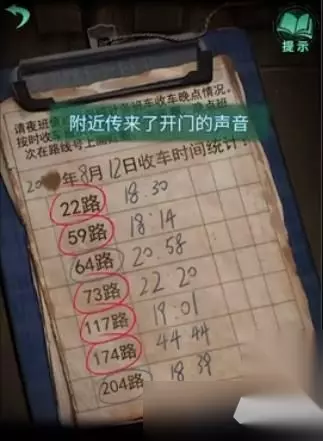 提示
按时收车
附近传来了开门的声音
次在路线号上
年8月12日收车时间统计:
22路 18.30
59路 18.14
64路 20.58
73路 22.20
117路 19.01
174路 44.44
204路 18.39